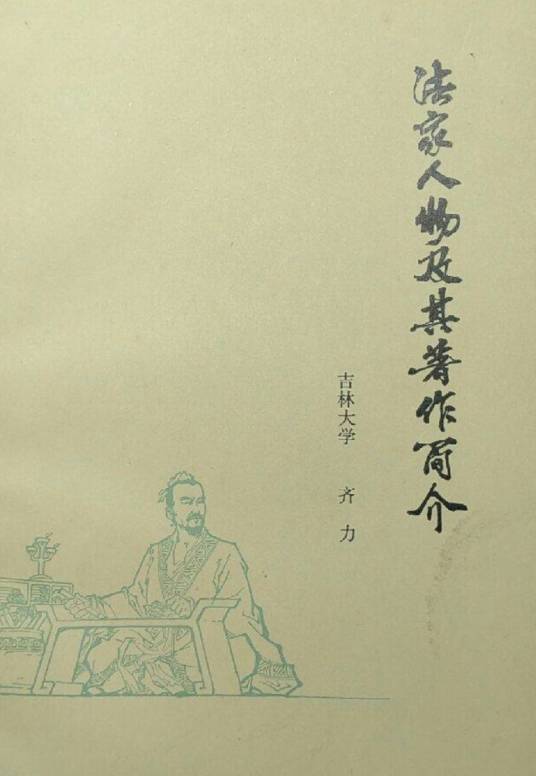 法家人物及其著作简介
吉林大学 齐力